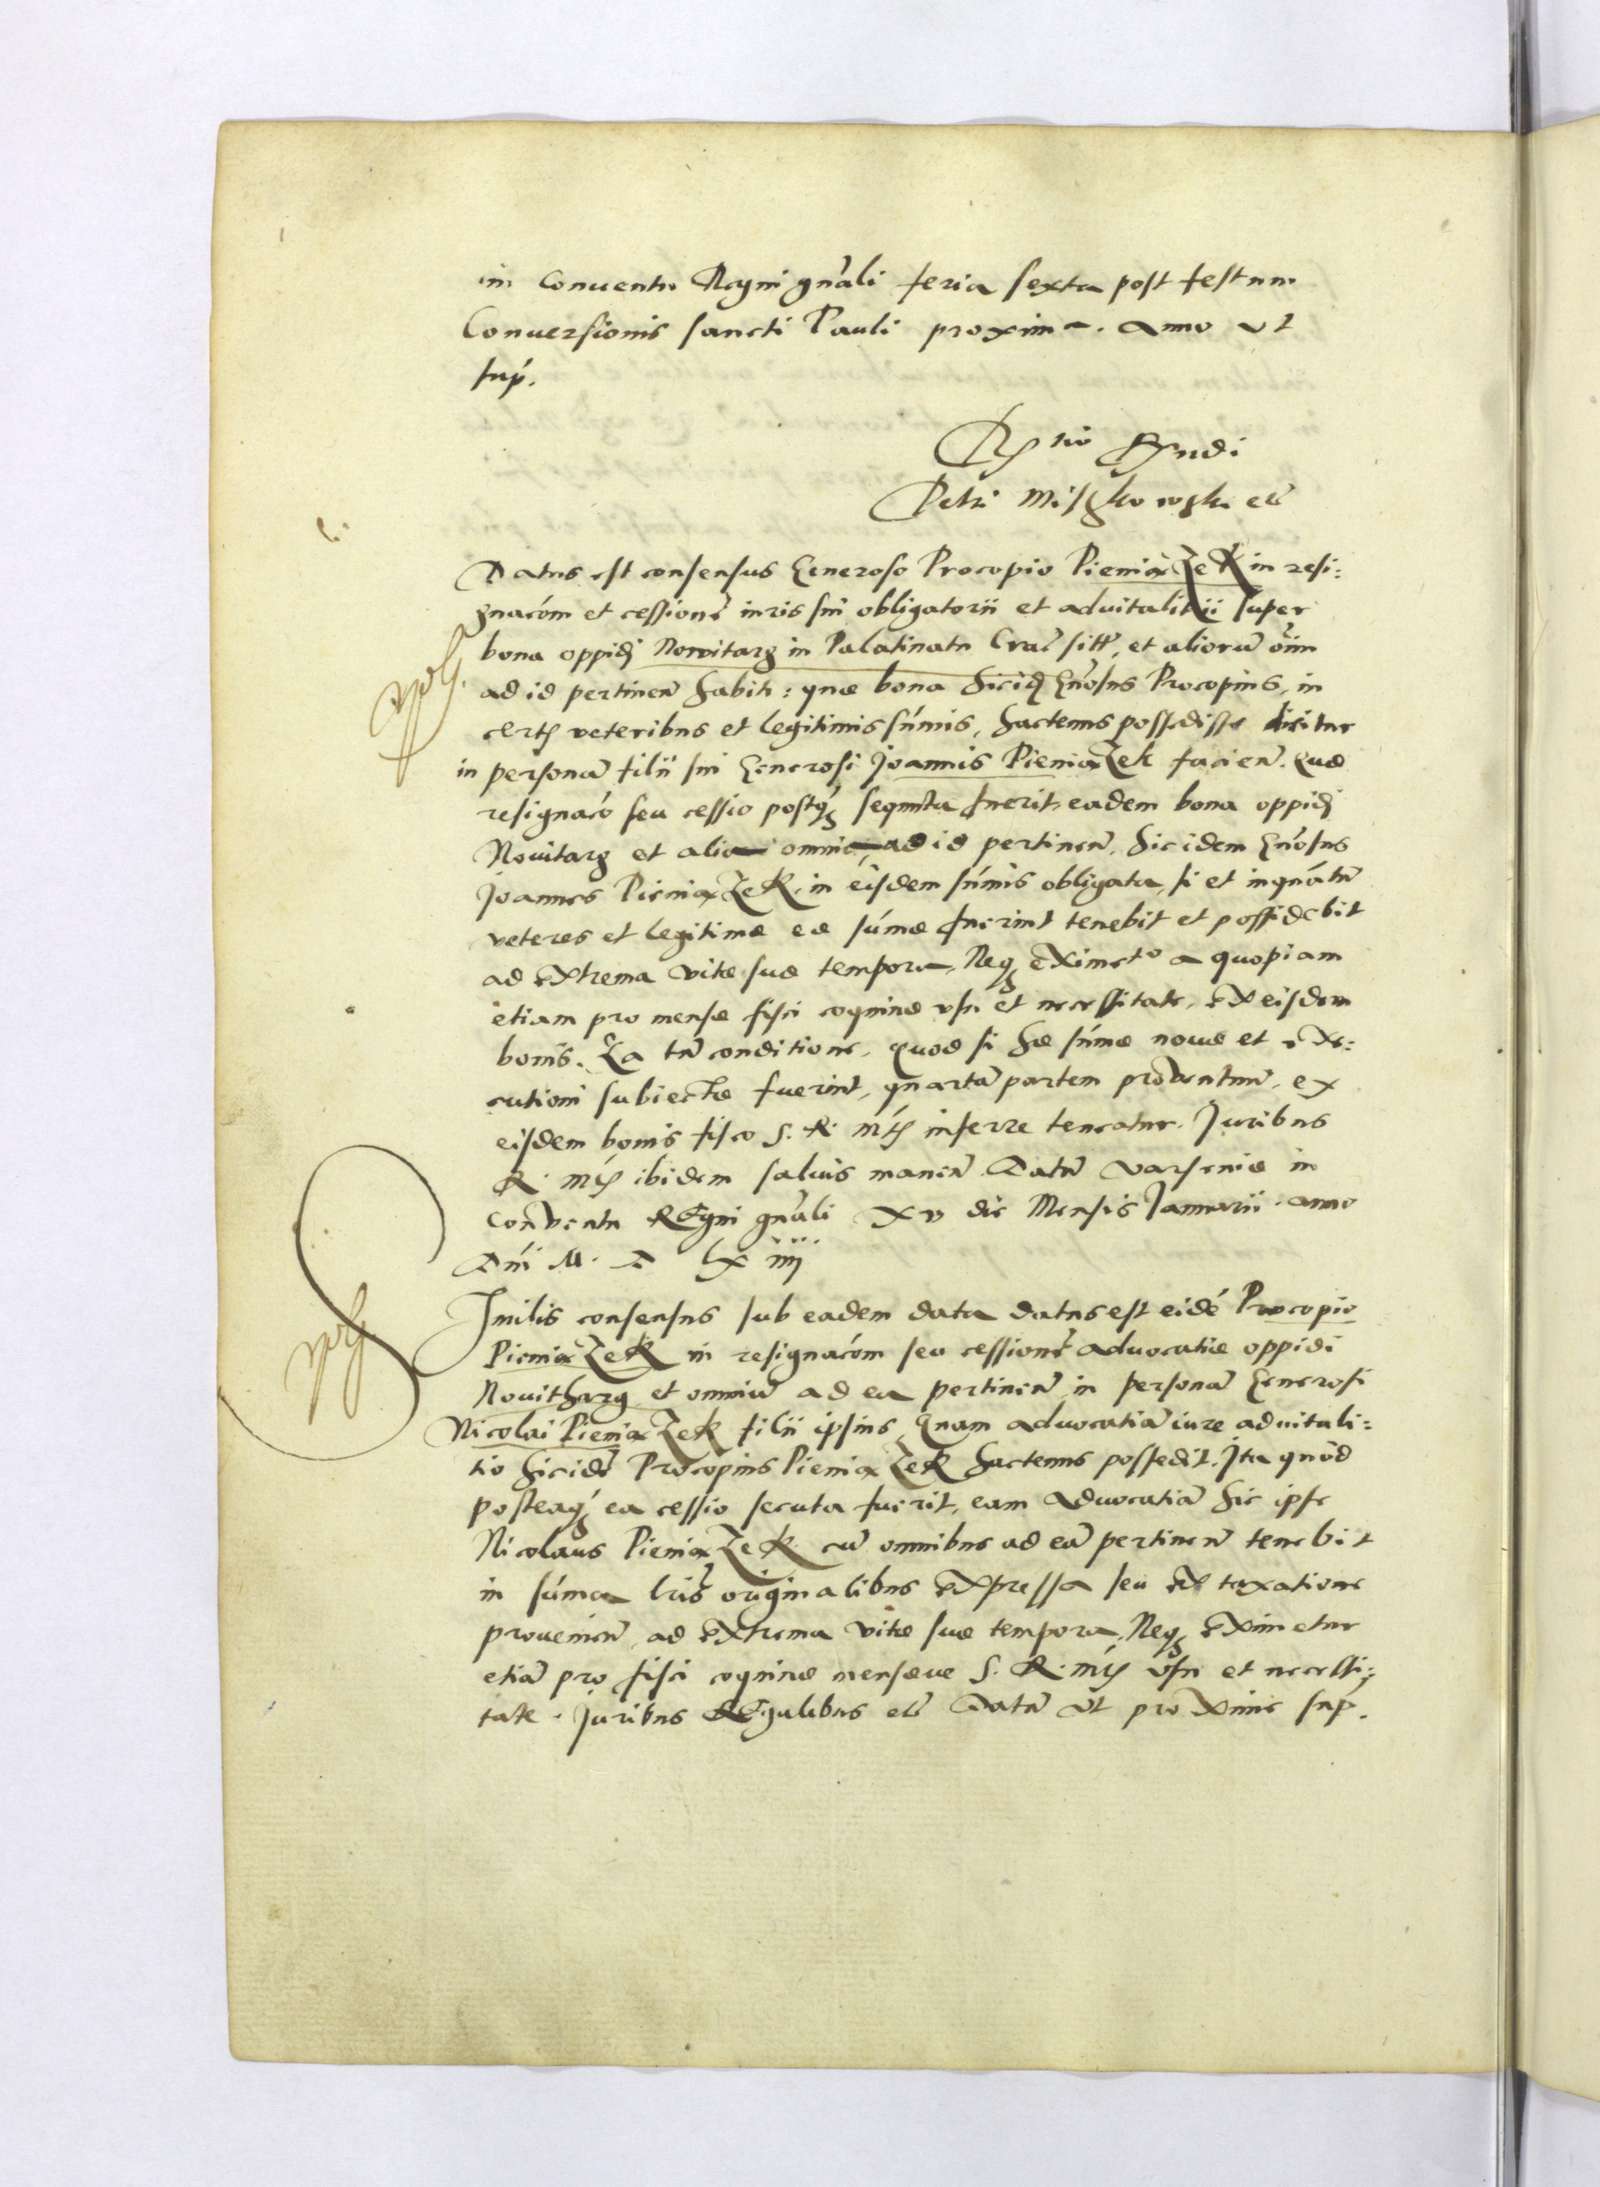 in Conuentu Regni gnali feria sexta post festum
Conuersionis sancti Pauli proxima. anno vt
sup.
Rtio Rndi
Petri Miszkowski etc
Datus est consensus Generoso Procopio PieniąZeK in resi:
gnacom et cessione iuris sui obligatorii et aduitalitii super
bona oppidi Nowitarg in Palatinatu Crac sitt, et alioru oim
ad id pertinen habit: quae bona hicid Gnosus Procopius, in
certis veteribus et legitimis sumis, hactenus possedisse dicitur
in persona filii sui Generosi Joannis PieniąZek facien. Quae
resignaco seu cessio postq sequuta fuerit, eadem bona oppidi
Nouitarg et alia omnia, ad id pertinen, hic idem Gnosus
Joannes PieniąZeK, in eisdem sumis obligata, si et inquatu
veteres et legitimae eae sumae fuerint tenebit et possidebit
ad extrema vitae suae tempora, Neq eximeto a quopiam
etiam pro mensae fisci coquinae usu et necessitate, ex eisdem
bonis. Ea tn conditione, quod si hae sumae nouae et exe:
cutioni subiectae fuerint, quarta partem prouentuum, ex
eisdem bonis fisco S. R. Mtis inferre teneatur. Juribus
R. Mtis ibidem saluis manen. Datu Varseuiae in
Conuentu Regni gnali XV die Mensis Januarii anno
Dni M. D LXiiii
Similis consensus sub eadem data datus est eide Procopio
PieniąZeK in resignacom seu cessione aduocatiae oppidi
Nouitharg et omniu ad ea pertinen in persona Generosi
Nicolai PieniąZek filii ipsius, Quam aduocatia iure aduitali:
tio hicide Procopius PieniąZeK hactenus possedit. Ita quod
posteaq ea cessio secuta fuerit, eam Aduocatia hic ipse
Nicolaus PieniąZeK cu omnibus ad ea pertinen tenebit
in suma lris originalibus expressa seu ex taxatione
prouenien, ad extrema vitae suae tempora, Neq eximetur
etia pro fisci coquinae mensaeue S. R. Mtis usu et necessi:
tate. Juribus Regalibus etc Datu ut proxime sup.